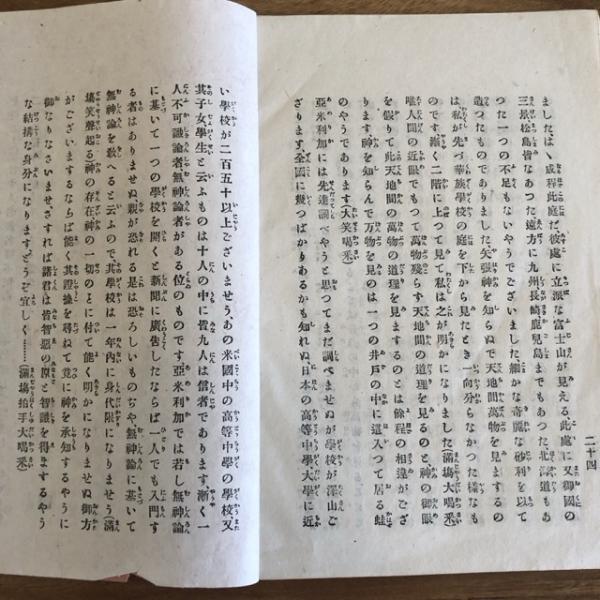 二十四
ました「ハヽ成程此庭だ彼處に立派な富士山が見える、此處に又御國の
三景松島皆なあつた遠方に九州長崎鹿兒島までもあつた北海道もあ
つた一つの不足もないやうでございました細かな奇麗な砂利を以て
造つたものでありました矢張神を知らぬで天地間萬物を見まするの
は私が先づ華族學校の庭を下から見たとき一向分らなかつた樣なも
のです漸く二階に上つて見て私は之が明かになりました(滿塲大喝釆)
唯人間の近眼でもつて萬物殘らず天地間の道理を見るのと神の御眼
を假りて此天地間の萬物の道理を見まするのとは餘程の相違がござ
ります神を知らんで万物を見のは一つの井戸の中に這入つて居る蛙
のやうであります(大笑喝釆)
亞米利加には先達調べやうと思つてまだ調べませぬが學校が深山ご
ざります、全國に幾つばかりあるかも知れぬ日本の高等中學大學に近
い學校が二百五十以上ございませう、あの米國中の高等中學の學校又
其子女學生と云ふものは十人の中に置九人は信者であります漸く一
人不可識論者無神論者がある位のものです亞米利加では若し無神論
に基いて一つの學校を開くと新聞に廣告したならば一人でも入門す
る者はありませぬ親が恐れる是は恐ろしいものぢや無神論に基いて
無神論を敎へると云ふので、其學校は一年內に身代限になりませう(滿
塲笑聲起る)神の存在神の一切のとに付て能く明かになりませぬ御方
がございまするならば能く其證據を尋ねて竟に神を承知するやうに
御なりなさいませ、ざすれば諸君は皆智惡の原と智識を得まするやう
な結搆な身分になりますどうぞ宜しく……(滿塲拍手大喝釆)